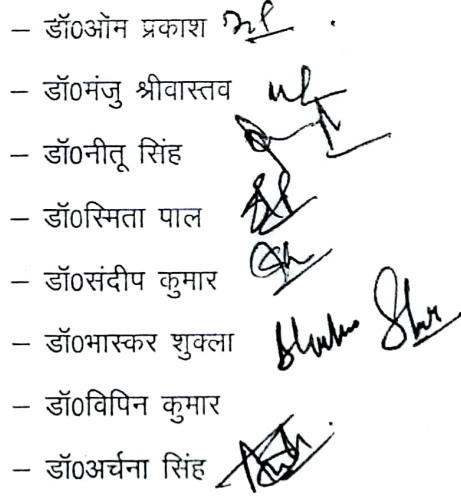 – डॉ0ओम प्रकाश
– डॉ0मंजु श्रीवास्तव
– डॉ0नीतू सिंह
– डॉ0स्मिता पाल
– डॉ0संदीप कुमार
– डॉ0भास्कर शुक्ला
– डॉ0विपिन कुमार
– डॉ0अर्चना सिंह